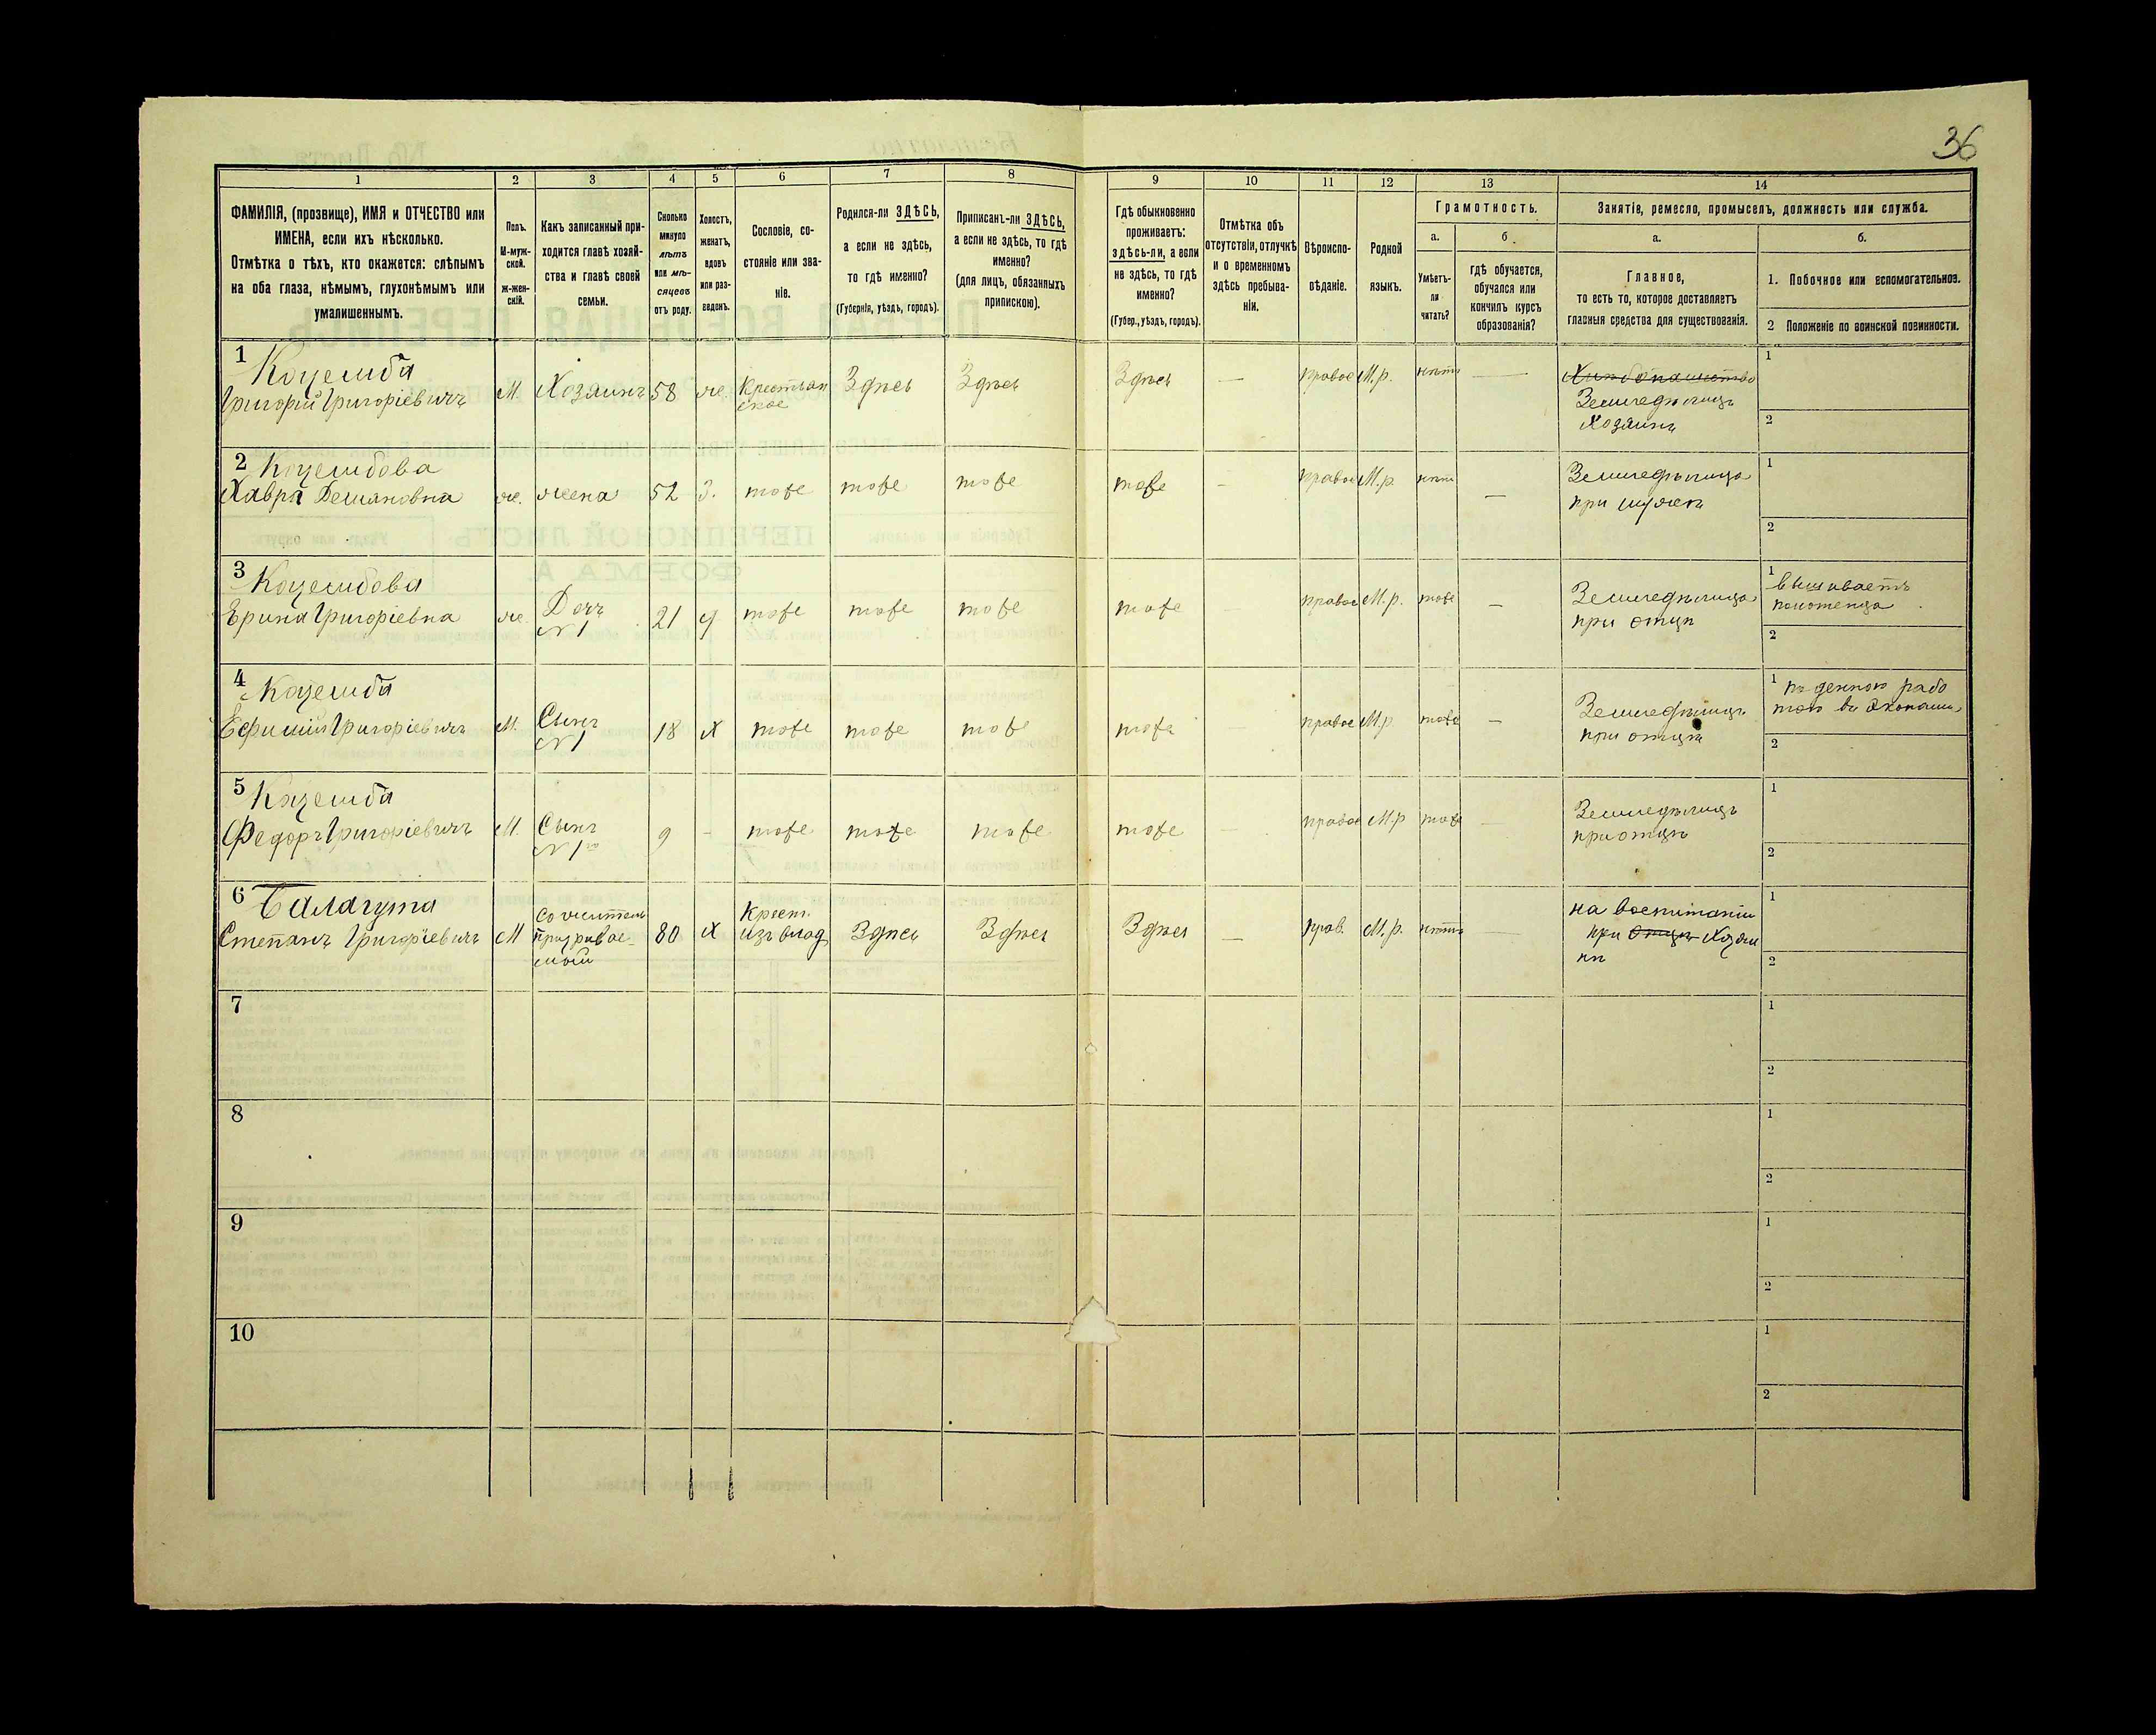 36
1 2 3 4 5 6 7 8 9 10 11 12 13 14
ФАМИЛІЯ, (прозвище), ИМЯ и ОТЧЕСТВО или
ИМЕНА, если ихъ нѣсколько.
Отмѣтка о тѣхъ, кто окажется: слѣпымъ
на оба глаза, нѣмымъ, глухонѣмымъ или
умалишеннымъ.
Полъ.
М-муж-
ской.
ж-жен-
скій.
Какъ записанный при-
ходится главѣ хозяй-
ства и главѣ своей
семьи.
Сколько
минуло
лѣтъ
или мѣ-
сяцевъ
отъ роду.
Холостъ,
женатъ,
вдовъ
или раз-
веденъ.
Сословіе, со-
стояніе или зва-
ніе.
Родился-ли ЗДѢСЬ,
а если не здѣсь,
то гдѣ именно?
(Губернія, уѣздъ, городъ).
Приписанъ-ли ЗДѢСЬ,
а если не здѣсь, то гдѣ
именно?
(для лицъ, обязанныхъ
припискою).
Гдѣ обыкновенно
проживаетъ:
здѣсь-ли, а если
не здѣсь, то гдѣ
именно?
(Губер., уѣздъ, городъ).
Отмѣтка объ
отсутствіи, отлучкѣ
и о временномъ
здѣсь пребыва-
ніи.
Вѣроиспо-
вѣданіе.
Родной
языкъ.
Грамотность.
а.
Умѣетъ-
ли
читать?
б.
гдѣ обучается,
обучался или
кончилъ курсъ
образованія?
Занятіе, ремесло, промыселъ, должность или служба.
а.
Главное,
то есть то, которое доставляетъ
главныя средства для существованія.
б.
1. Побочное или вспомогательное.
2 Положеніе по воинской повинности.
1 Коцемба
Григорій Григоріевичъ М. Хозяинъ 58 ж. Крестьян
ское Здѣсь Здѣсь Здѣсь — правос М.р. нѣтъ —
Хлѣбопашество
Земледѣлецъ
Хозяинъ
1
2
2 Коцембова
Хавра Демяновна ж. жена 52 З. тоже тоже тоже тоже - правос М.р. нѣт —
Земледѣлица
при мужѣ
1
2
3 Коцембова
Ярина Григоріевна ж. Дочь
№1 21 д тоже тоже тоже тоже правос М.р. тоже —
Земледѣлица
при отцѣ
1 вышиваетъ
полотенца
2
4 Коцемба
Ефимій Григоріевичъ М. Сынъ
№1 18 Х тоже тоже тоже тоже правос М.р. тоже —
Земледѣлецъ
при отцѣ
1 поденною рабо
тою въ Экономіи
2
5 Коцемба
Федоръ Григоріевичъ М. Сынъ
№1го 9 - тоже тоже тоже тоже правос М.р тоже
Земледѣлецъ
при отцѣ
1
2
6 Балагута
Степанъ Григоріевичъ М
призривае-
мый 80 Х Крест.
изъ влад Здѣсь Здѣсь Здѣсь — прав. М.р. нѣтъ
на воспитаніи
при Отцѣ Хозяи
нѣ
1
2
7 1
2
8 1
2
9 1
2
10 1
2